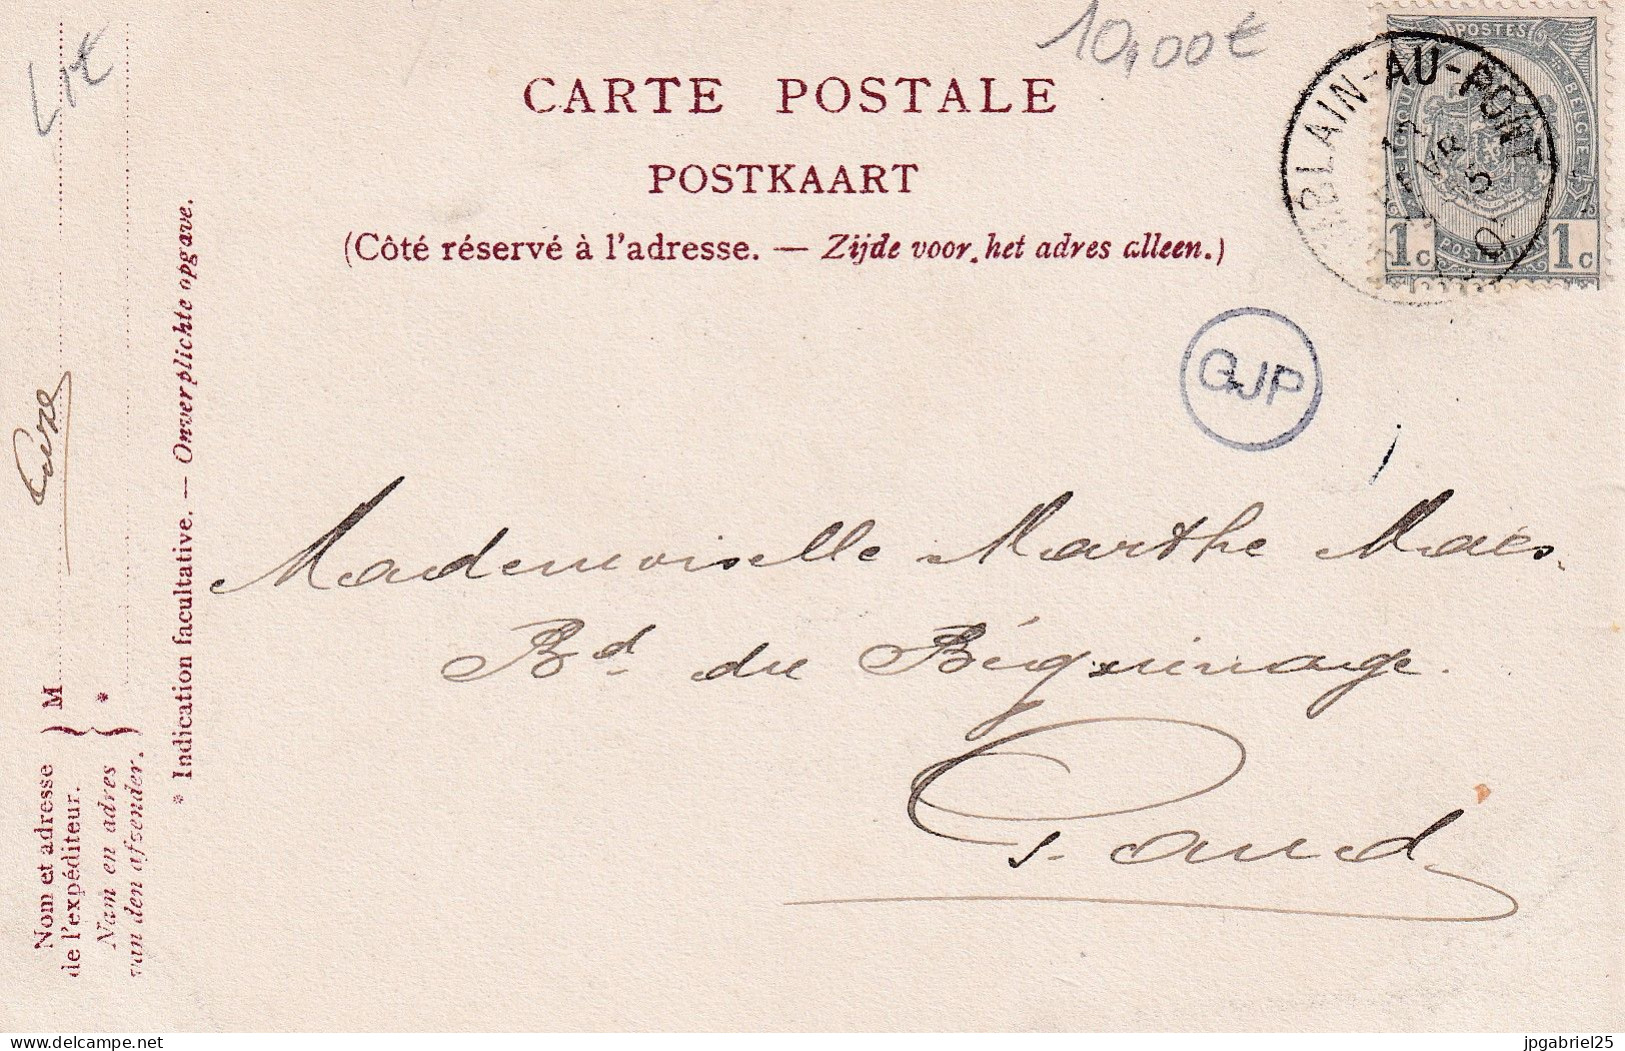 10,00€
CARTE POSTALE
POSTKAART
(Côté réservé à l'adresse. — Zijde voor het adres alleen.)
POSTES
BELGIQUE
BELGIE
POSTERIJEN
1c 1c
BLAIN-AU-PONT
GJP
Mademoiselle Marthe Maes
Bd du Béguinage.
Gand
* Indication facultative. — Onverplichte opgave.
Nom et adresse
de l'expéditeur.
M
Nam en adres
van den afzender.
*
jpgabriel25